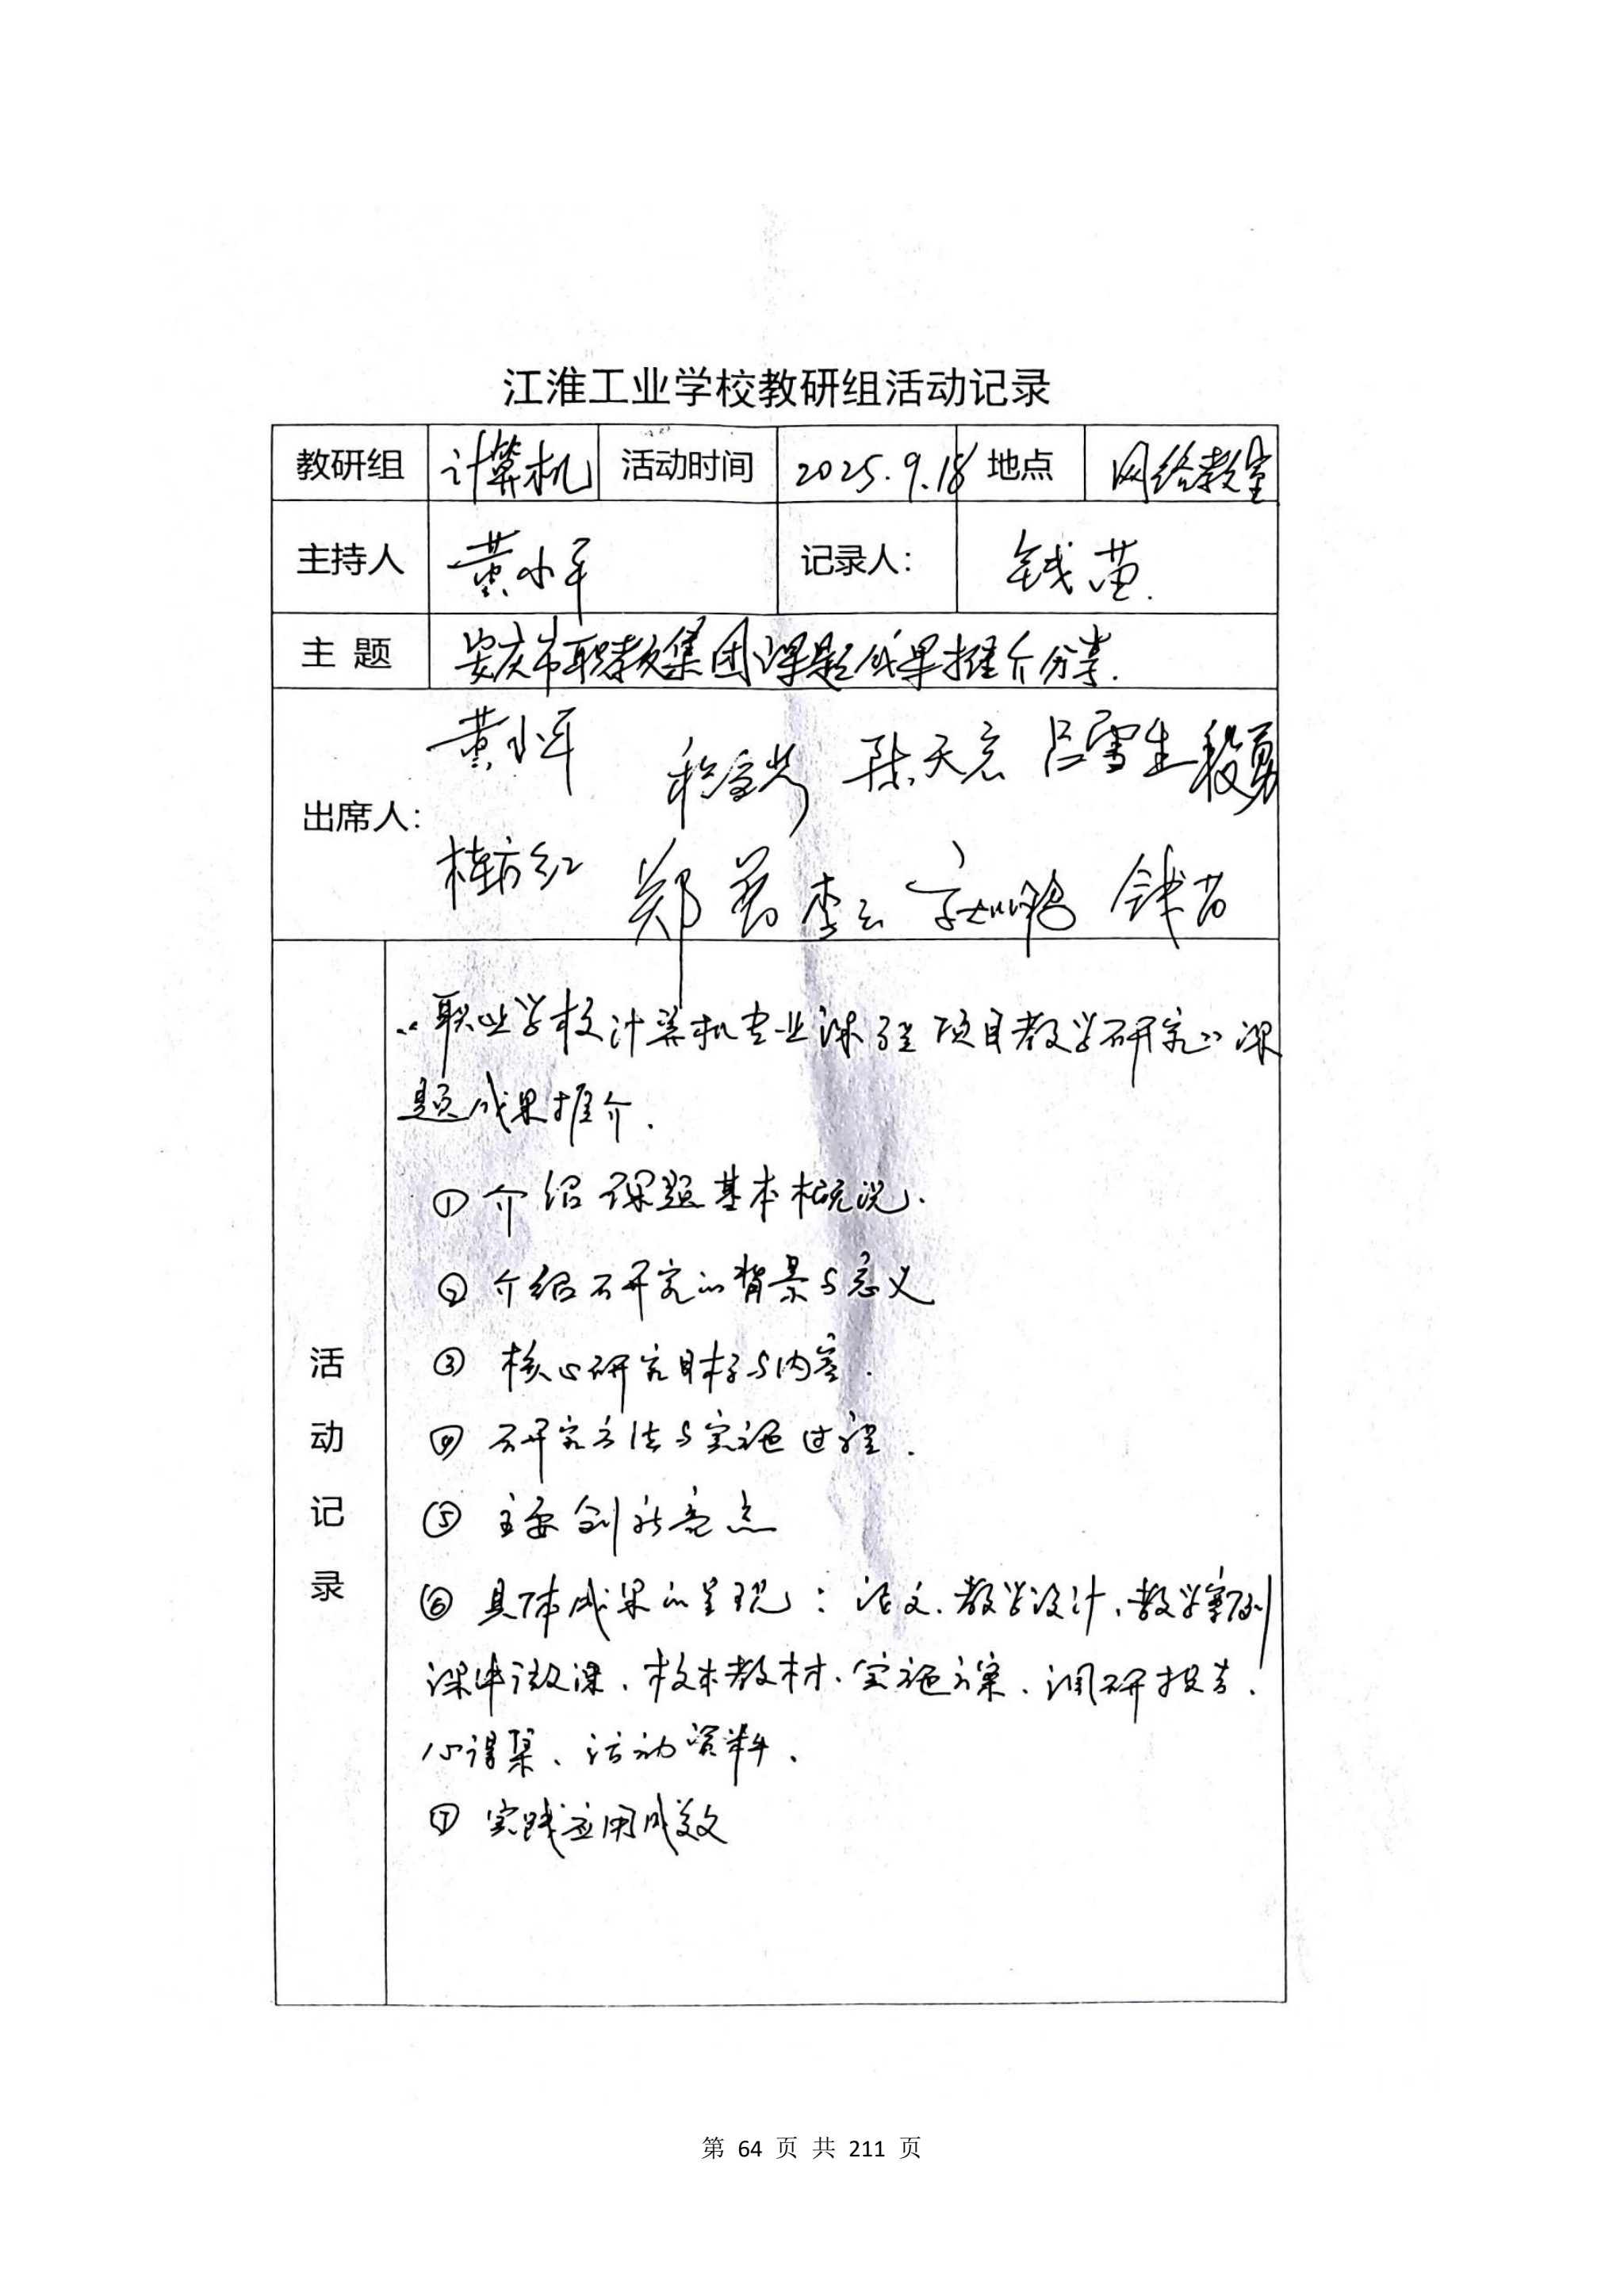 江淮工业学校教研组活动记录
教研组 计算机 活动时间 2025.9.18 地点 网络教室
主持人 黄小军 记录人： 钱苗.
主 题 安庆市职教集团课题成果推介分享.
黄小军 程 陈天宏 吕雪生 段勇
出席人：
桂方红 郑 李云 钱苗
“职业学校计算机专业课程项目教学研究”课
题成果推介.
①介绍课题基本概况.
②介绍研究的背景与意义
活 ③ 核心研究目标与内容.
动 ④ 研究方法与实施过程.
记 ⑤ 主要创新亮点
录 ⑥ 具体成果的呈现：论文、教学设计、教学案例
课件微课、校本教材、实施方案、调研报告、
心得集、活动资料.
⑦ 实践应用成效
第 64 页 共 211 页